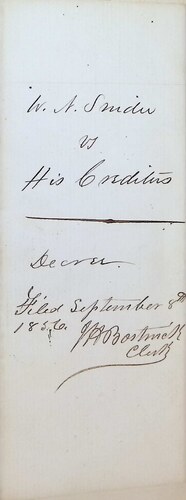 W. N. Snider
vs
His Creditors
Decree.
Filed September 8th
1856.
Bostwick
Clerk